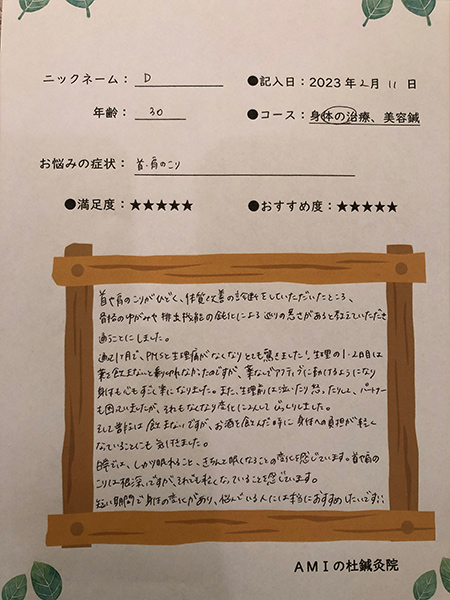 ニックネーム： D
●記入日：2023年2月11日
年齢： 30
●コース：身体の治療、美容鍼
お悩みの症状： 首・肩のこり
●満足度：★★★★★
●おすすめ度：★★★★★
首や肩のこりがひどく、体質改善の診断をしていただいたところ、
骨格のゆがみや排出機能の鈍化による巡りの悪さがあると教えていただき
通うことにしました。
通い1ヶ月で、PMSと生理痛がなくなりとても驚きました！生理の1-2日目は
薬を飲まないと乗りきれなかったのですが、薬なしでアクティブに動けるようになり
身も心もすごく楽になりました。また、生理前は泣いたり怒ったりし、パートナー
も困っていましたが、それもなくなり変化に2人してびっくりしました。
そして普段は飲まないですが、お酒を飲んだ時に身体への負担が軽く
なっていることにも気付きました。
日常では、しっかり眠れること、きちんと眠くなることの変化を感じています。首や肩の
こりは根深いですが、それでも軽くなっていることを感じています。
短い期間で身体の変化があり、悩んでいる人には本当におすすめしたいです!!
AMIの杜鍼灸院